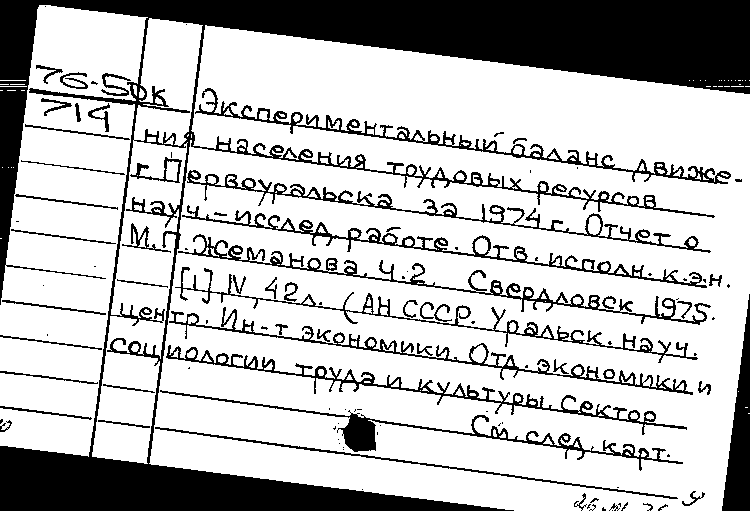 76-5 ДК Экспериментальный баланс движе-
714
ния населения трудовых ресурсов
г. Первоуральска за 1974 г. Отчет о
науч.-исслед. работе. Отв. исполн. к.э.н.
М.П. Жеманова. Ч.2. Свердловск, 1975.
[1], IV, 42 л. (АН СССР. Уральск. науч.
центр. Ин-т экономики. Отд. экономики и
социологии труда и культуры. Сектор
См. след. карт.
У